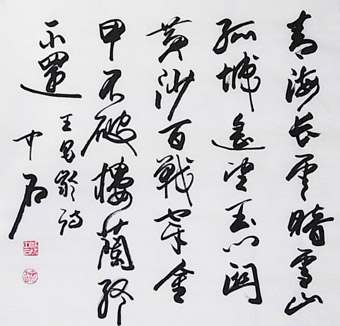 青海長雲暗雪山
孤城遙望玉門關
黃沙百戰穿金
甲不破樓蘭終
不還
王昌齡詩
中石